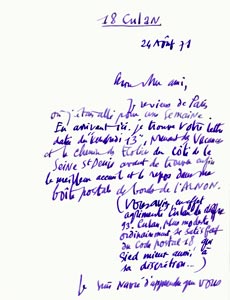 18 Culan.
24 Août 71
Mon cher ami,
Je reviens de Paris
où j'étais allé pour une semaine.
En arrivant ici, je trouve votre lettre
datée du "Vendredi 13",
et le chemin de du côté de la
Seine St Denis avant de trouver enfin
le meilleur accueil et repos dans ma
boîte postale des bords de l'ARNON.
(Vous savez, en effet
Culan, du chiffre
93. Culan, plus modeste
ordinairement, se satisfait
du Code postal 18, qui
sied mieux aussi à
sa discrétion...)
Je suis navré d'apprendre que vous